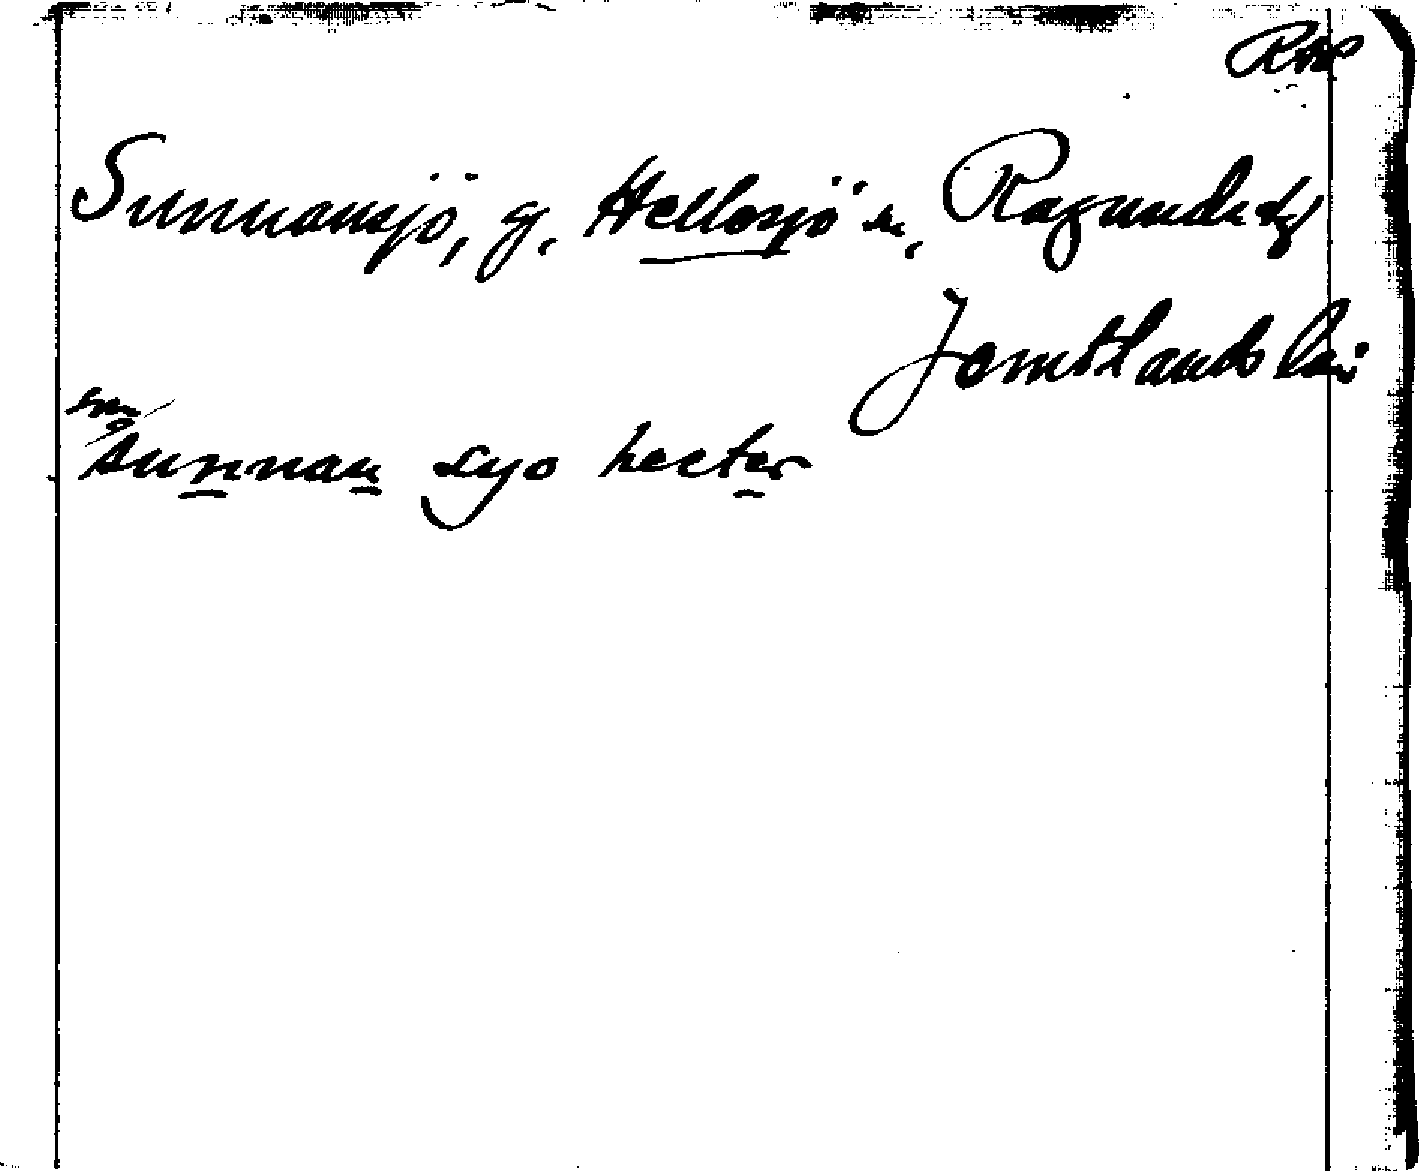 Sunnansjö, g. Hellesjö sn, Ragunda tg
Jemtlands län
sunnan syo heeter